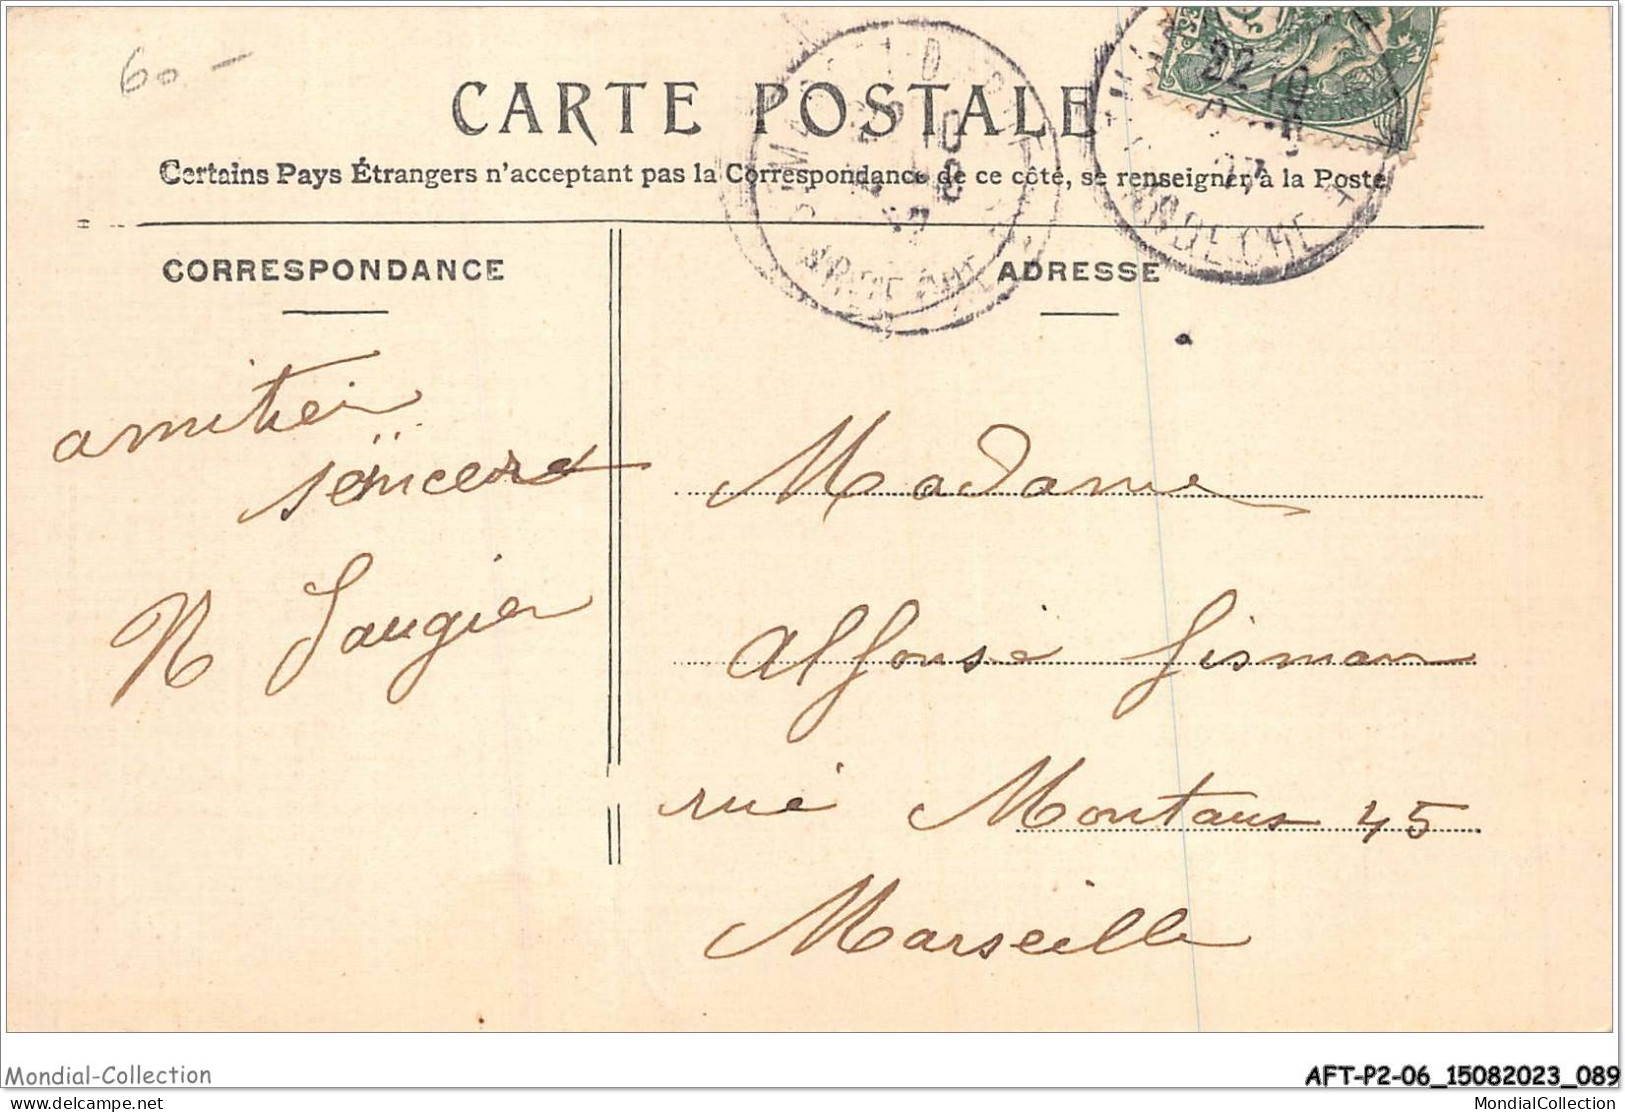 60 -
CARTE POSTALE
Certains Pays Étrangers n'acceptent pas la Correspondance de ce côté, se renseigner à la Poste
CORRESPONDANCE
ADRESSE
22 10
ARDECHE
ARDECHE
amitiéi
sencere
N Saugier
Madame
Alfonse Gisman
rue Montaux 45
Marseille
Mondial-Collection
AFT-P2-06_15082023_089
delcampe.net
MondialCollection